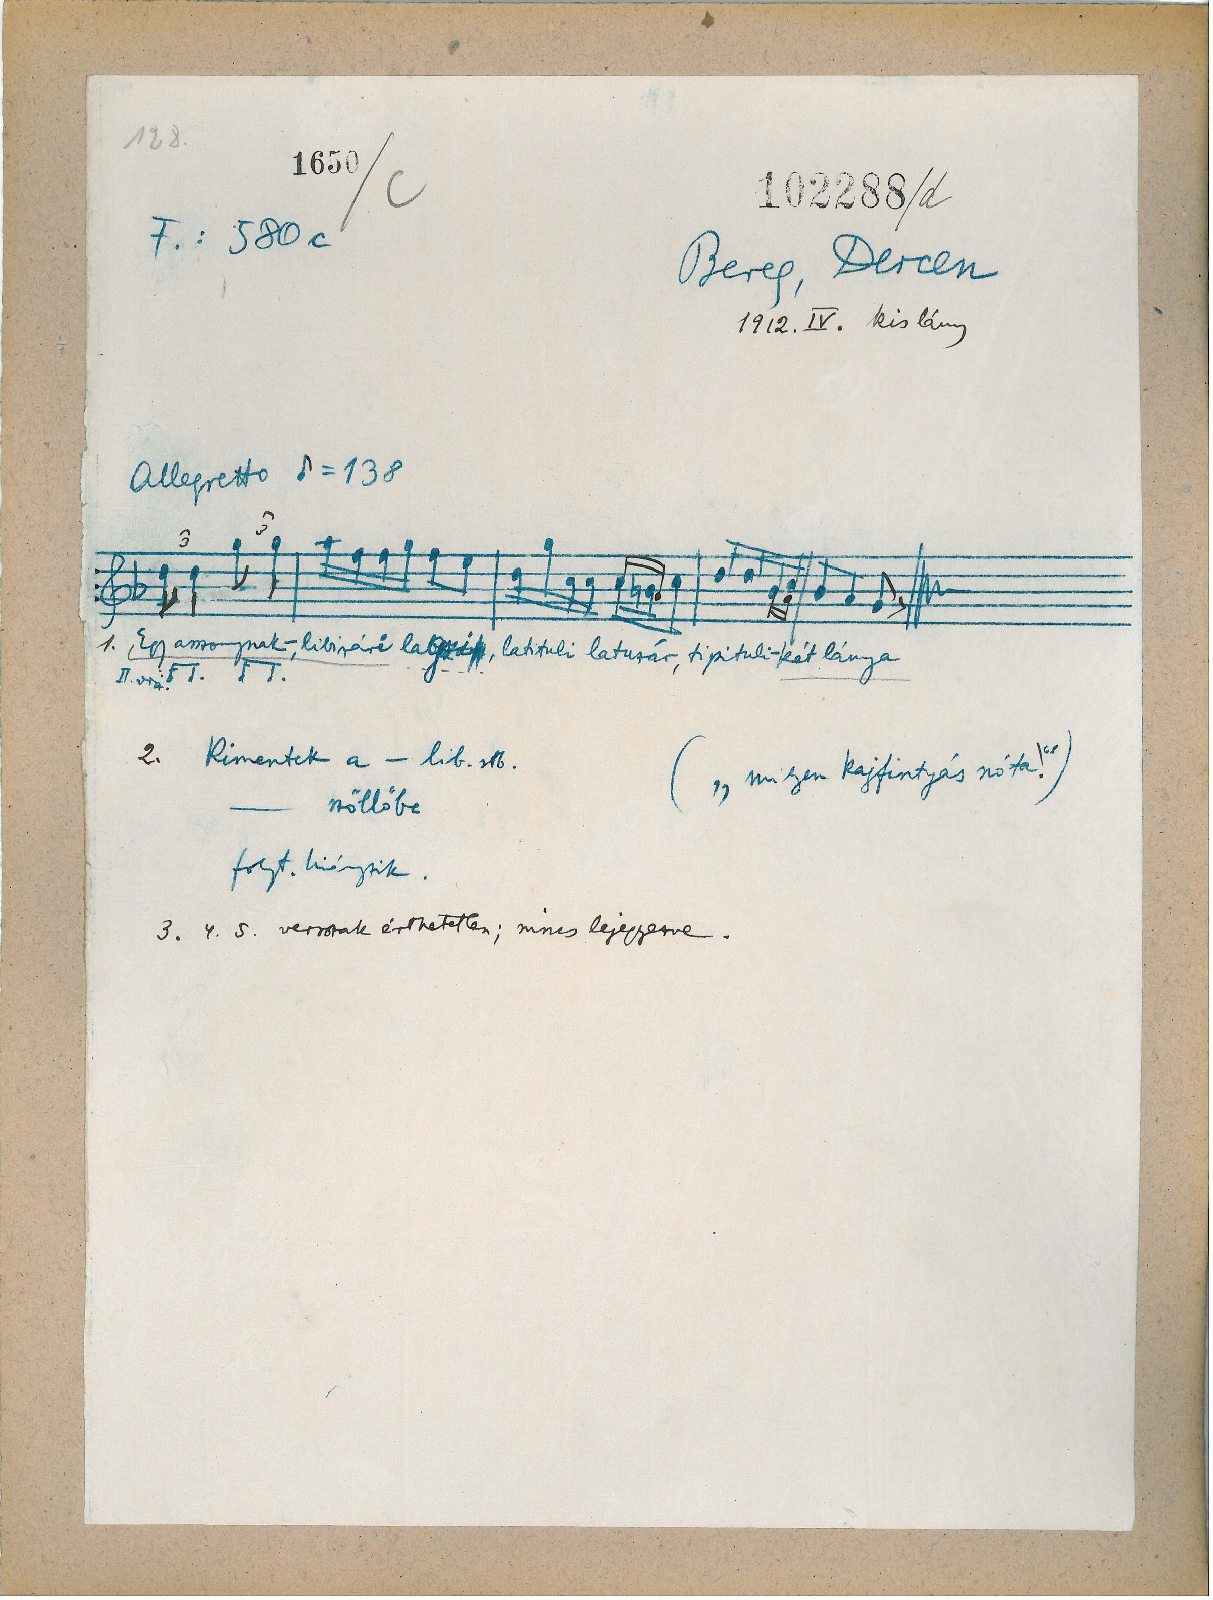 128.
1650/c
102288/d
F.: 580 c
Bereg, Dercen
1912. IV. kislány
Allegretto ♪ = 138
3 3
1. Egy asszonynak-, libizáré la, latituli latuzár, tipituli-két lánya
II. vsz.
2. Kimentek a — lib. stb.
— szőllőbe
("milyen kajfintyás nóta!")
folyt. hiányzik.
3. 4. 5. versszak érthetetlen; nincs lejegyezve.